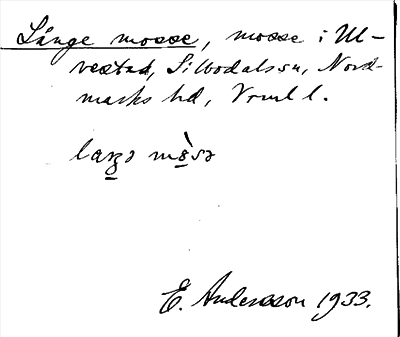 Långe mosse, mosse i Ul-
vestad, Silbodals sn, Nord-
marks hd, Vrml l.
laŋə mo̱sə
E. Andersson 1933.